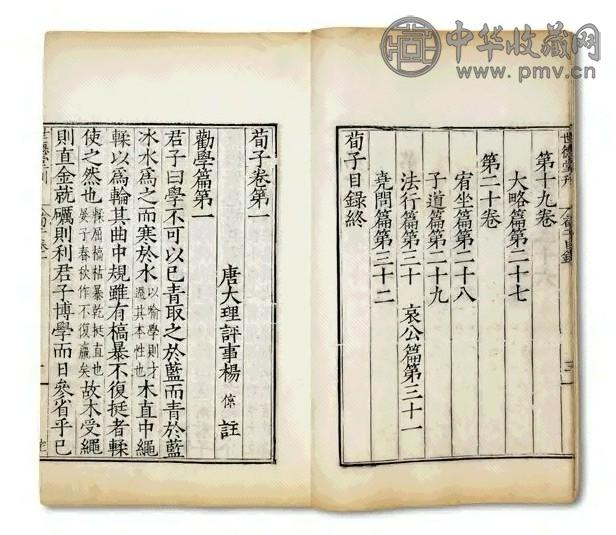 中华收藏网
www.pmv.cn
世德堂刊
第十九卷
大略篇第二十七
第二十卷
宥坐篇第二十八
子道篇第二十九
法行篇第三十 哀公篇第三十一
堯問篇第三十二
荀子目錄終
荀子卷第一
唐大理評事楊 倞 註
勸學篇第一
君子曰學不可以已青取之於藍而青於藍
冰水爲之而寒於水以喻學則才過其本性也木直中繩
輮以爲輪其曲中規雖有槁暴不復挺者輮
使之然也輮屈槁枯暴乾挺直也晏子春秋作不復贏矣故木受繩
則直金就厲則利君子博學而日參省乎已